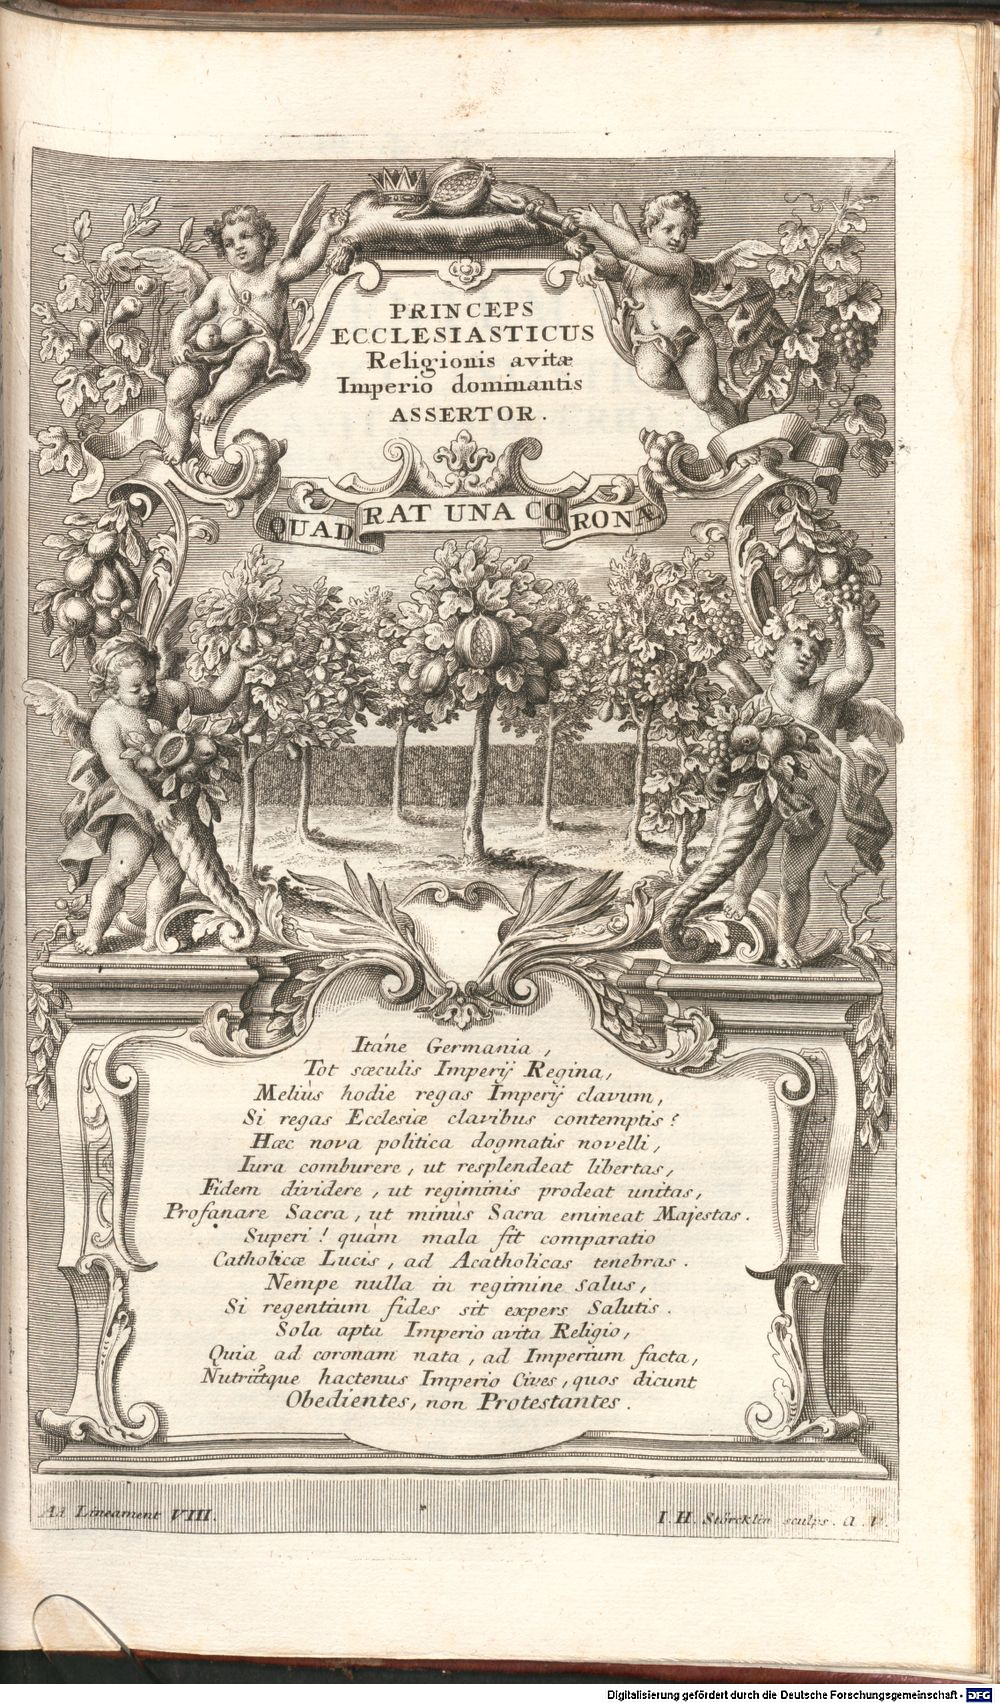 PRINCEPS
ECCLESIASTICUS
Religionis avitæ
Imperio dominantis
ASSERTOR.
QUADRAT UNA CORONÆ
Itáne Germania,
Tot sæculis Imperij Regina,
Meliùs hodie regas Imperij clavum,
Si regas Ecclesiæ clavibus contemptis?
Hæc nova politica dogmatis novelli,
Iura comburere, ut resplendeat libertas,
Fidem dividere, ut regiminis prodeat unitas,
Profanare Sacra, ut minùs Sacra emineat Majestas.
Superi! quàm mala fit comparatio
Catholicæ Lucis, ad Acatholicas tenebras.
Nempe nulla in regimine salus,
Si regentium fides sit expers Salutis.
Sola apta Imperio avita Religio,
Quia ad coronam nata, ad Imperium facta,
Nutriitque hactenus Imperio Cives, quos dicunt
Obedientes, non Protestantes.
Ad Lineament VIII.
I. H. Störcklin sculps. A. V.
Digitalisierung gefördert durch die Deutsche Forschungsgemeinschaft - DFG